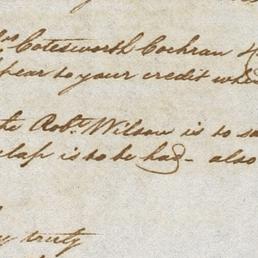 Cotesworth Cochran
pear to your credit whe
te Robt. Wilson is to sa
lass is to be had - also
y truly